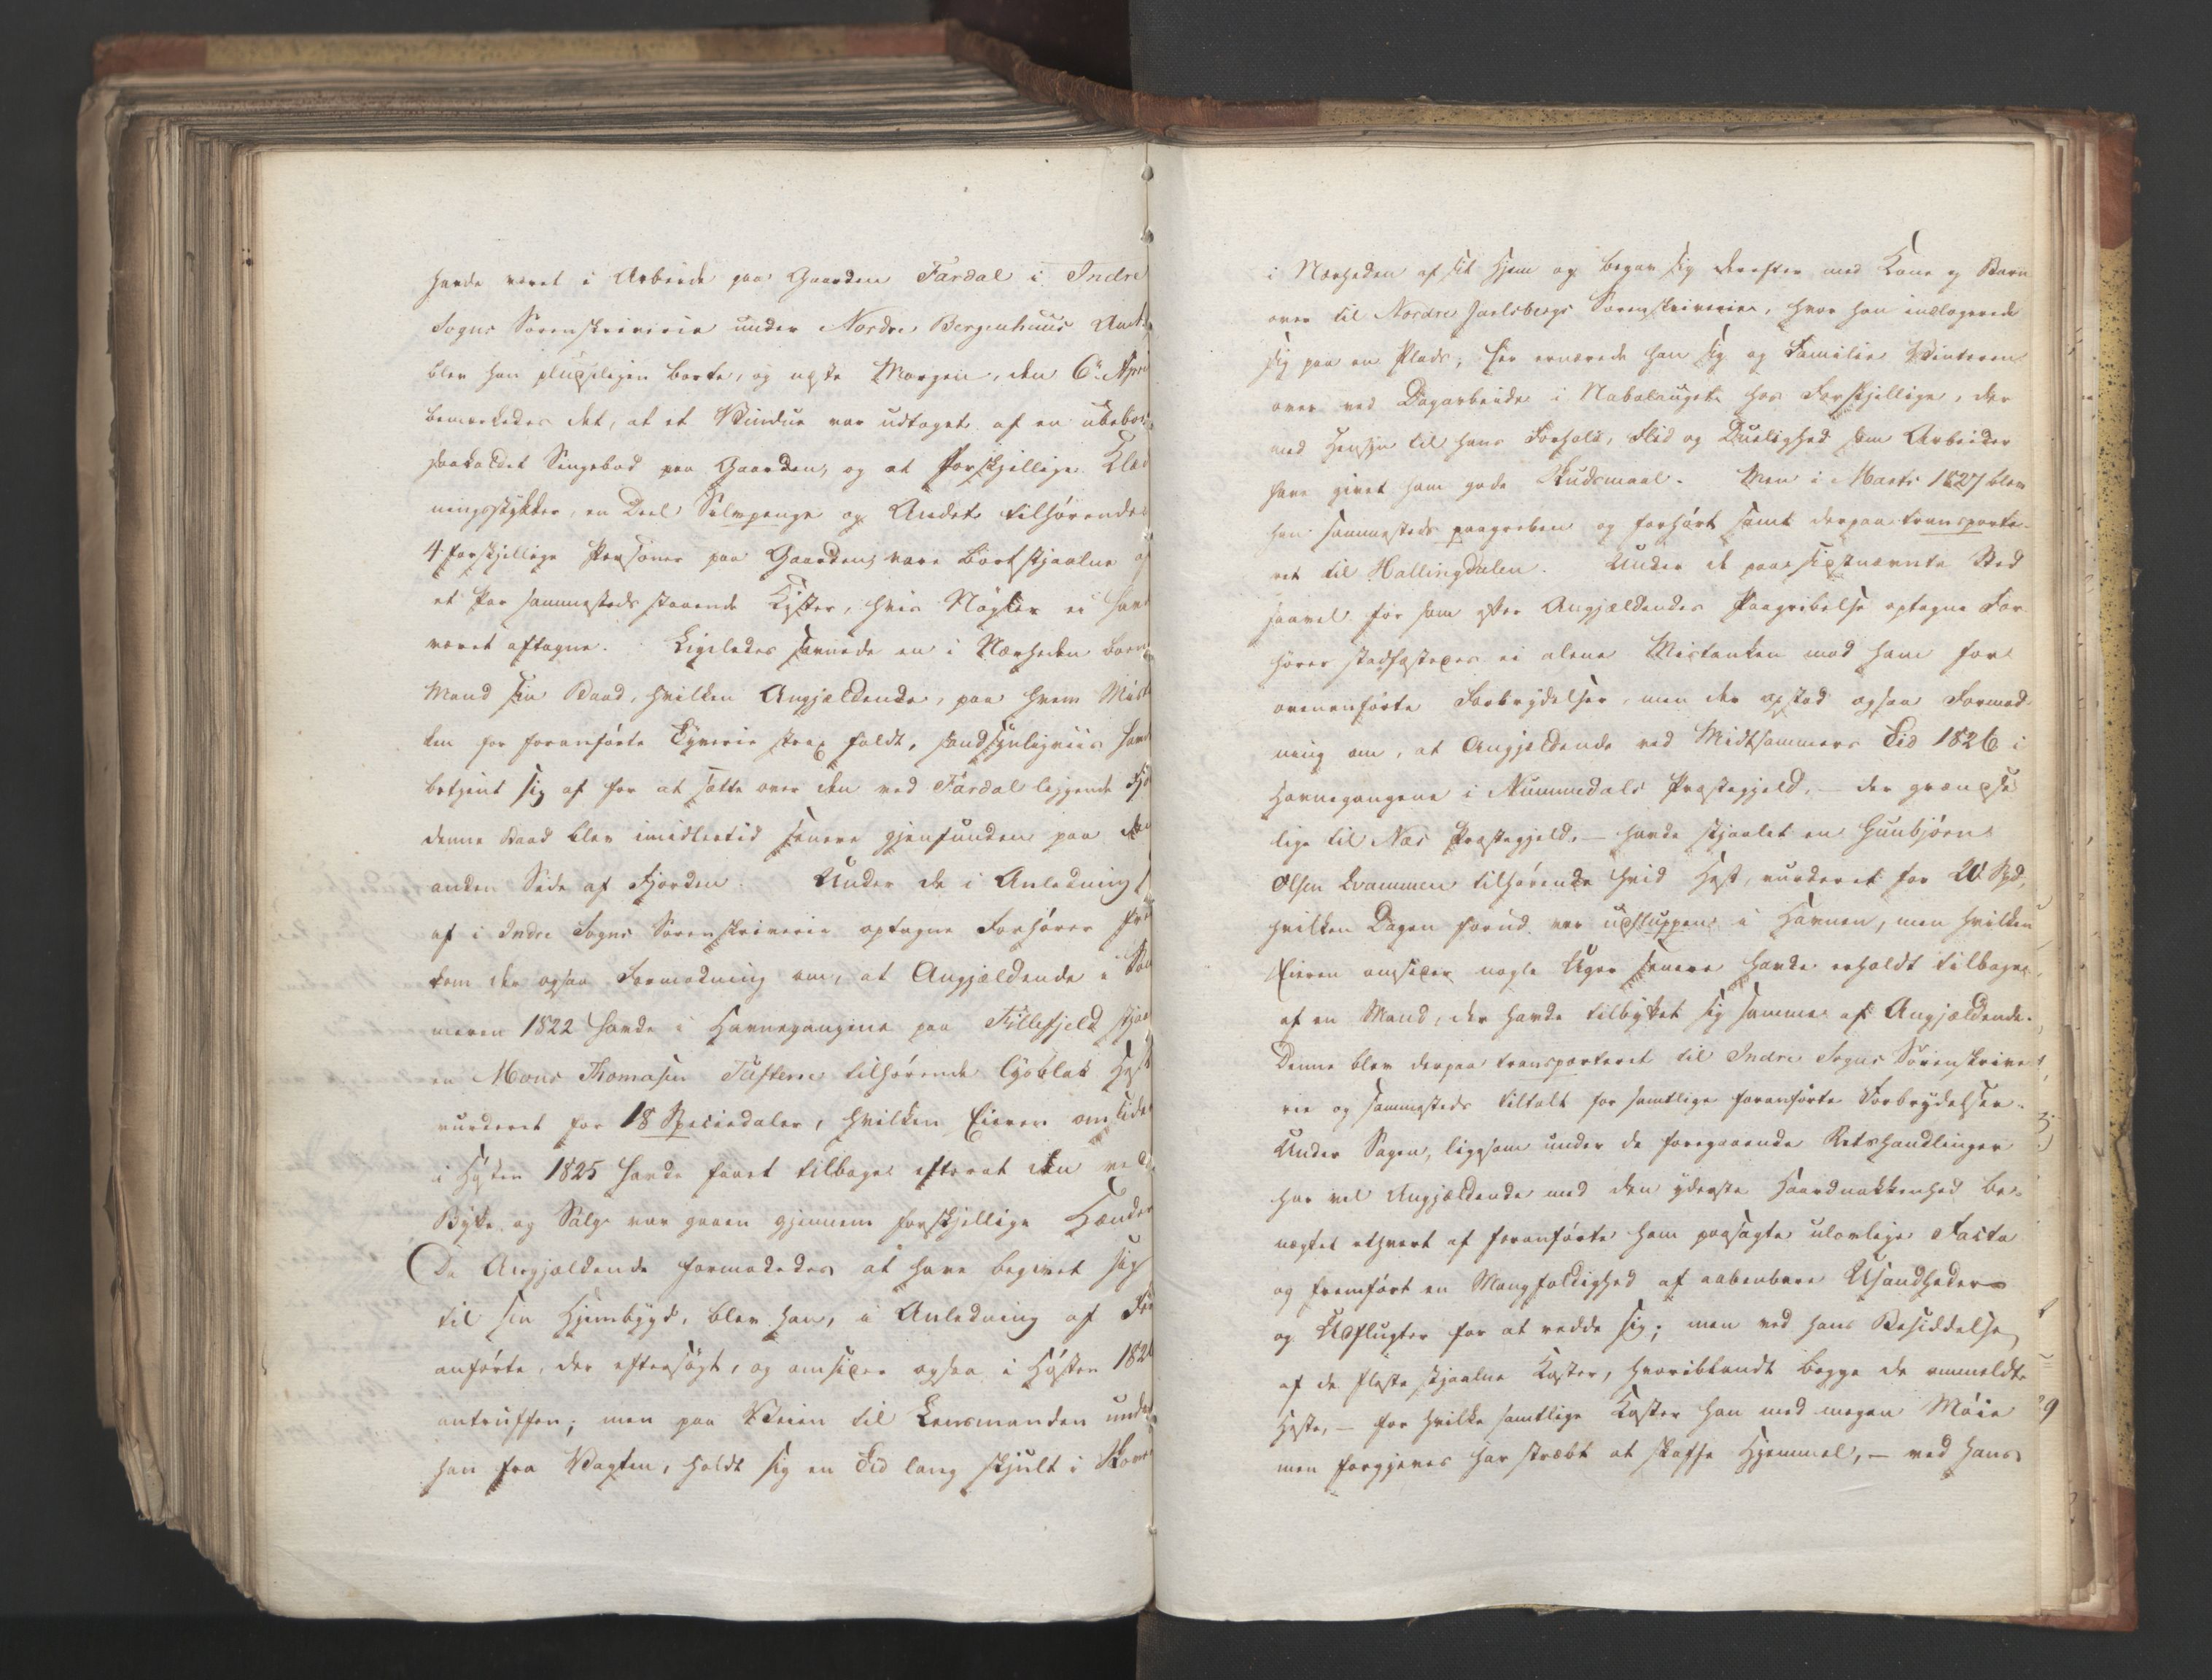 havde været i Arbeide paa Gaarden Fardal i Indre
Sogns Sorenskriverie under Nordre Bergenhuus Amt,
blev han pludseligen borte, og næste Morgen, den 6te Apri
bemærkedes det, at et Vindue var udtaget af en ubeboe
saakaldet Sengebod paa Gaarden, og at forskjellige Klæd
ningsstykker, en Deel Sølvpenge og Andet tilhørende
4 forskjellige Personer paa Gaarden, vare bortstjaalne af
et Par sammesteds staaende Kister, hvis Nøgler ei havd
været aftagne. Ligeledes savnede en i Nærheden boen
Mand sin Baad, hvilken Angjældende, paa hvem Mist
ken for foranførte Tyverie strax faldt, sandsynligviis havd
betjent sig af for at sætte over den ved Fardal liggende Fjo
denne Baad blev imidlertid senere gjenfunden paa den
anden Side af Fjorden. Under de i Anledning
af i Indre Sogns Sorenskriverie optagne Forhører frem
kom der ogsaa Formodning om, at Angjældende i Som
meren 1822 havde i Havnegangene paa Fillefjeld stjaa
en Mons Thomasen Tufteren tilhørende lysblak Hest
vurderet for 18 Speciedaler, hvilken Eieren omsider
i Høsten 1825 havde faaet tilbage efterat den ved
Bytte og Salg var gaaen gjennem forskjellige Hænder
Da Angjældende formodedes at have begivet sig
til sin Hjembygd, blev han, i Anledning af For
anførte, der eftersøgt, og omsider ogsaa i Høsten 182
antruffen; men paa Veien til Lensmanden und
han fra Vagten, holdt sig en Tid lang skjult i Skove
i Nærheden af sit Hjem og begav sig derefter med Kone og Barn
over til Nordre Jarlsbergs Sorenskriverie, hvor han indlogerede
sig paa en Plads; her ernærede han sig og Familie Vinteren
over ved Dagarbeide i Nabolauget hos Forskjellige, der
med Hensyn til hans Forhold, Flid og Duelighed som Arbeider
have givet ham gode Skudsmaal. Men i Marts 1827 blev
han sammesteds paagreben og forhørt samt derpaa transporte-
ret til Hallingdalen. Under de paa sidstnævnte Sted
saavel før som efter Angjældendes Paagribelse optagne For-
hører stadfæstedes ei alene Mistanken mod ham for
ovenanførte Forbrydelser, men der opstod ogsaa Formod-
ning om, at Angjældende ved Midtsommers Tid 1826 i
Havnegangene i Nummedals Præstegjeld, – der grændse
lige til Næs Præstegjeld, – havde stjaalet en Gunbjørn
Olsen Kvammen tilhørende hvid Hest, vurderet for 20 Spd,
hvilken Dagen forud var udsluppen i Havnen, men hvilken
Eieren omsider nogle Uger senere havde erholdt tilbage
af en Mand, der havde tilbyttet sig samme af Angjældende.
Denne blev derpaa transporteret til Indre Sogns Sorenskrive-
rie og sammesteds tiltalt for samtlige foranførte Forbrydelser.
Under Sagen, ligesom under de foregaaende Retshandlinger
har vel Angjældende med den yderste Haardnakkenhed be-
nægtet ethvert af foranførte ham paasagte ulovlige Facta
og fremført en Mangfoldighed af aabenbare Usandheder
og Udflugter for at redde sig; men ved hans Besiddelse
af de fleste stjaalne Koster, hvoriblandt begge de ommeldte
Heste, – for hvilke samtlige Koster han med megen Møie
men forgjeves har stræbt at skaffe Hjemmel, – ved hans